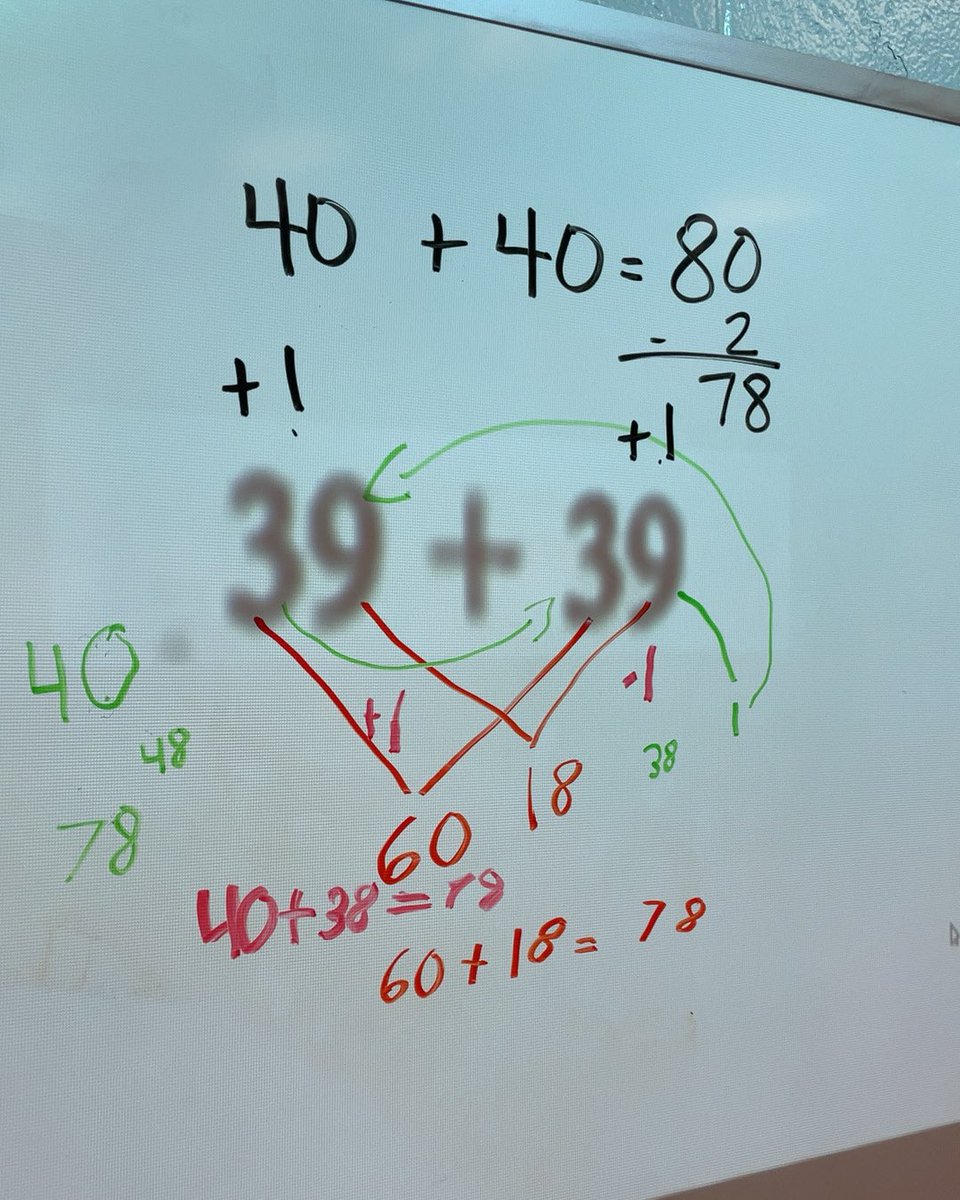 40 + 40 = 80
- 2
78
+1
+1
39 + 39
40
+1
-1
1
48
38
78
18
60
40+38=78
60+18= 78